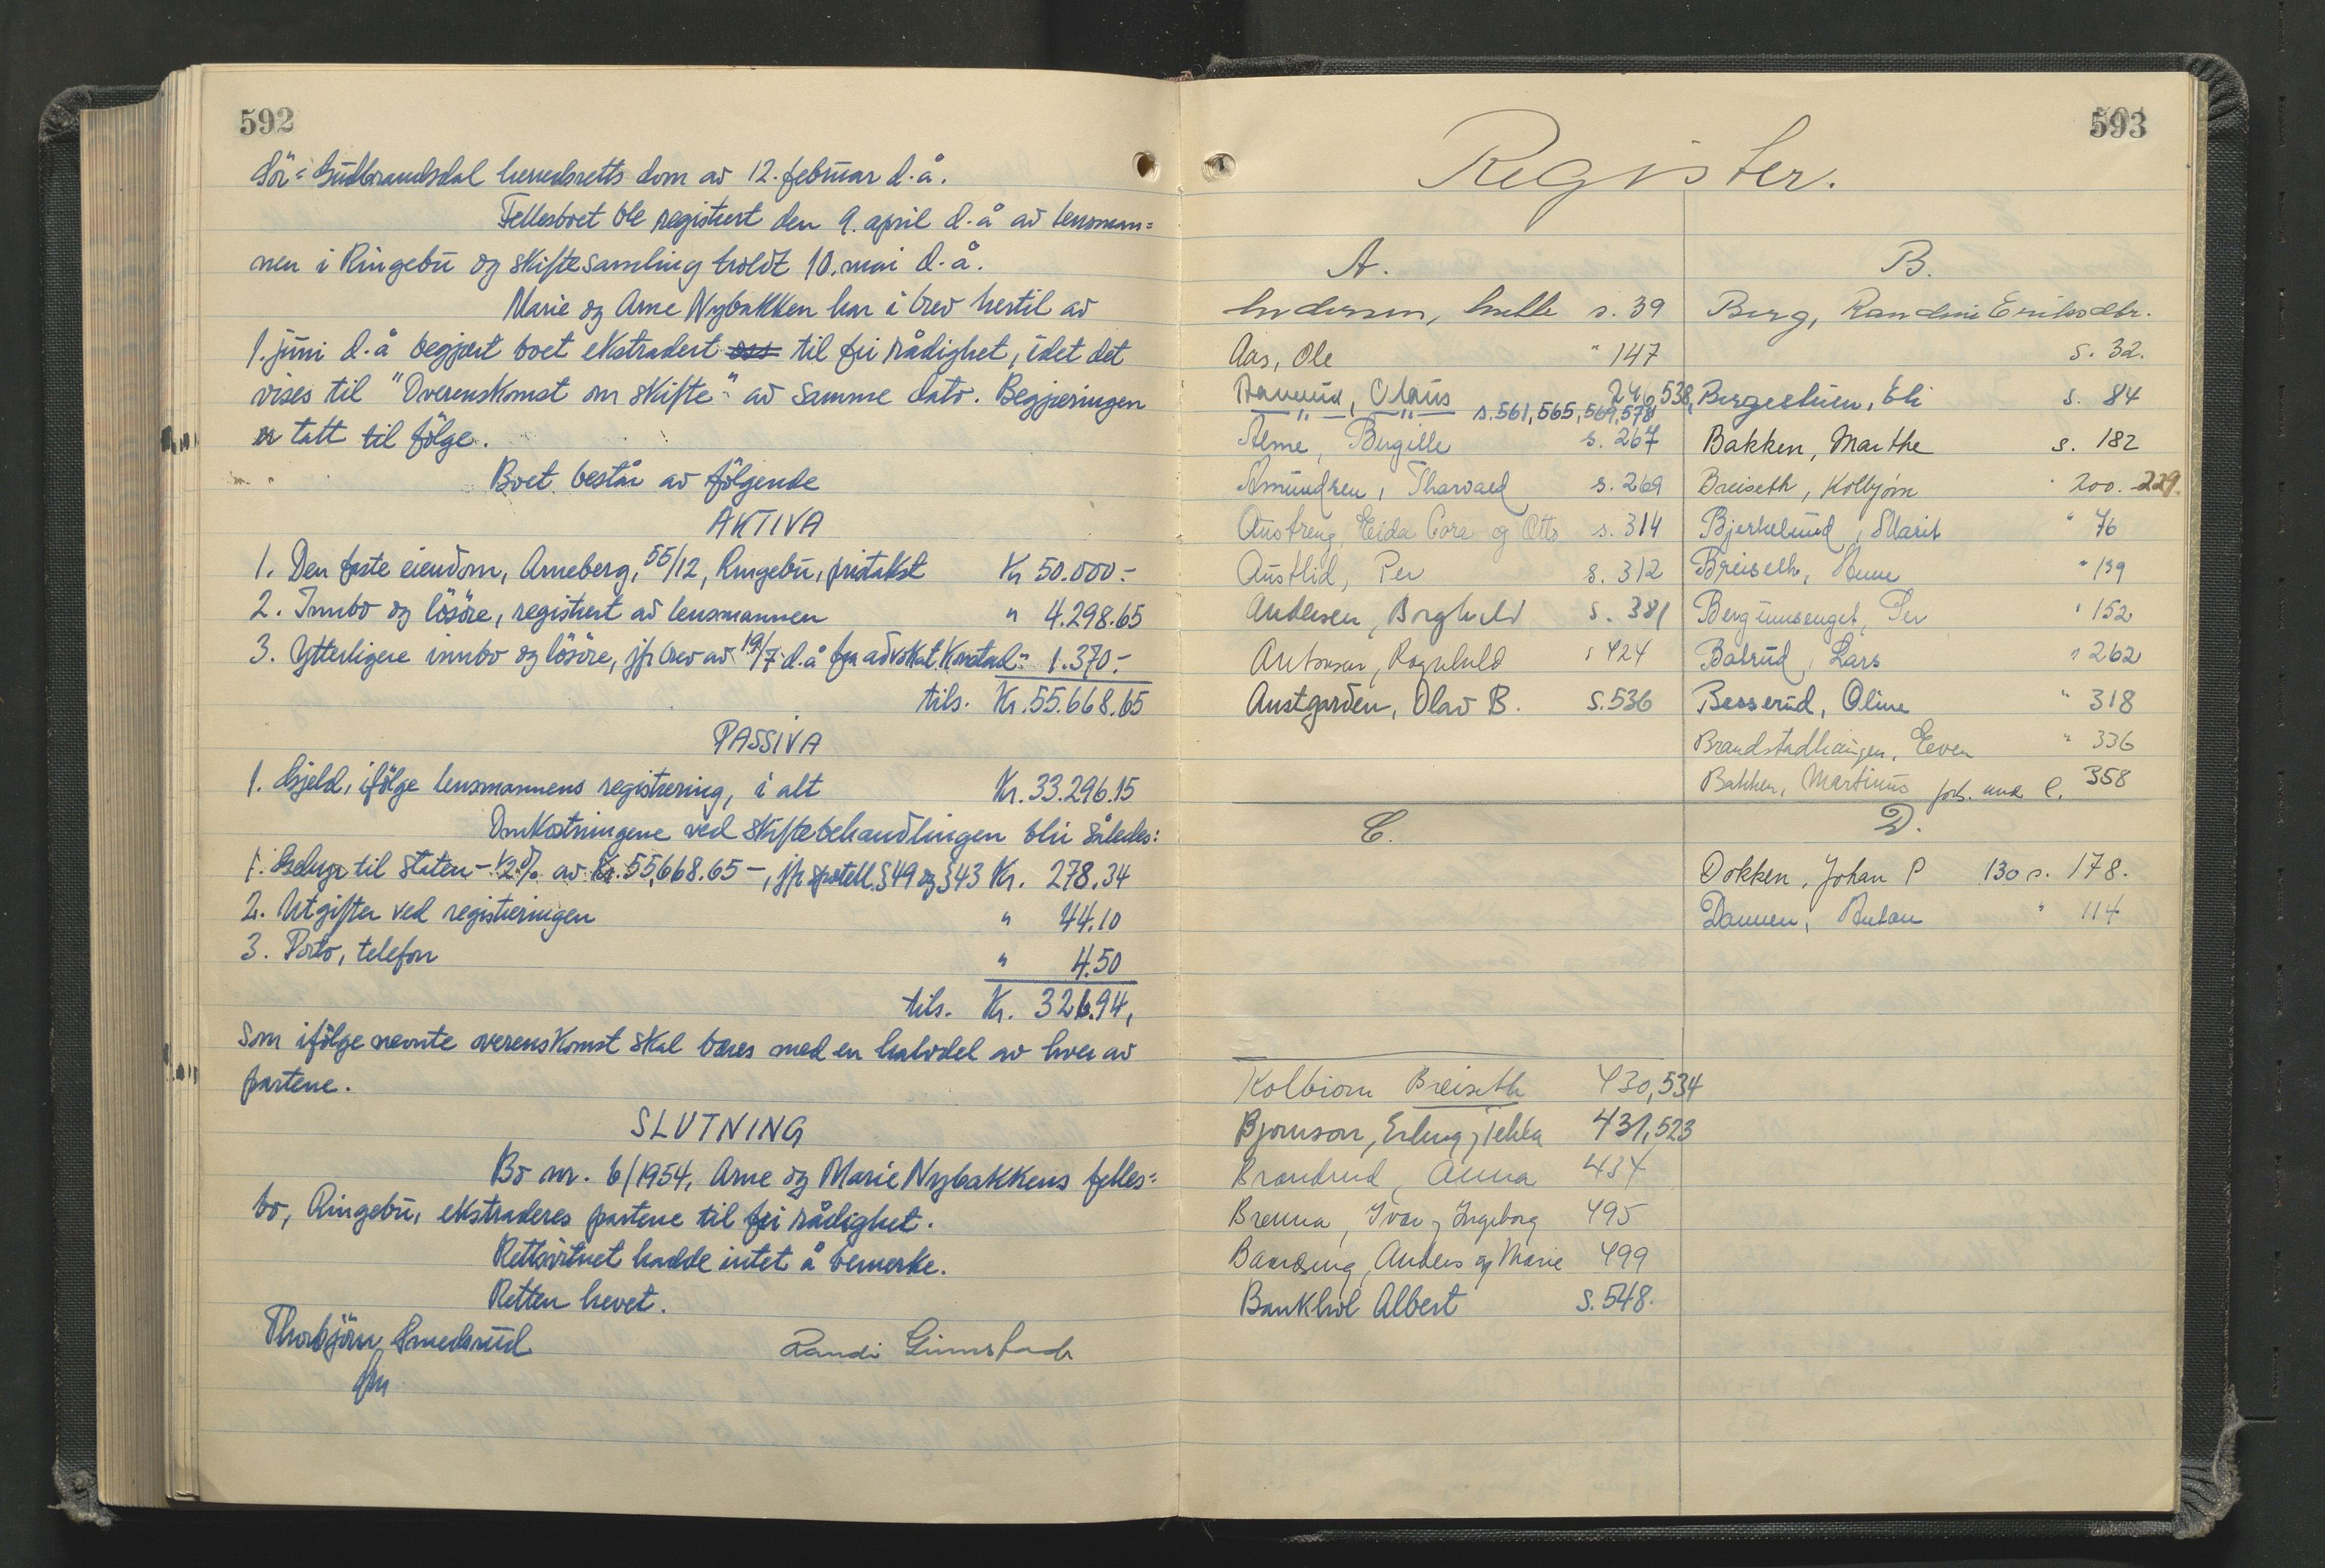 592
Sør-Gudbrandsdal herredsretts dom av 12. februar d.å.
Fellesboet ble registrert den 9. april d.å av lensman=
nen i Ringebu og skiftesamling holdt 10. mai d.å.
Marie og Arne Nybakken har i brev hertil av
1. juni d.å begjært boet ekstradert til fri rådighet, idet det
vises til "Overenskomst om skifte" av samme dato. Begjæringen
er tatt til følge.
Boet består av følgende
AKTIVA
1. Den faste eiendom, Arneberg, 55/12, Ringebu, pristakst Kr 50.000.-
2. Innbo og løsøre, registrert av lensmannen " 4.298.65
3. Ytterligere innbo og løsøre, jfr brev av 19/7 d.å fra advokat " 1.370.-
tils. Kr. 55.668.65
PASSIVA
1. Gjeld, ifølge lensmannens registrering, i alt Kr. 33.296.15
Omkostningene ved skiftebehandlingen blir således:
1. Gebyr til staten - 1/2% av Kr. 55,668.65 -, jfr sportell. § 49 og § 43 Kr. 278.34
2. Utgifter ved registreringen " 44.10
3. Porto, telefon " 4.50
tils. Kr. 326.94,
som ifølge nevnte overenskomst skal bæres med en halvdel av hver av
partene.
SLUTNING
Bo nr. 6/1954, Arne og Marie Nybakkens felles=
bo, Ringebu, ekstraderes partene til fri rådighet.
Rettsvitnet hadde intet å bemerke.
Retten hevet.
Thorbjørn Smedsrud Randi Grimstad
593
Register.
A.
Andersen, s. 39
Aas, Ole " 147
Olaus 246, 538,
" " s. 561, 565, 569, 578
Alme, Birgitte s. 267
Amundsen, Tharvald s. 269
Austreng, Cora og Otto s. 314
Austlid, Per s. 312
Andersen, Borghild s. 381
Antonsen, Ragnhild s 424
Austgarden, Olav B. S. 536
B.
Berg, Randine Eriksdtr.
s. 32.
Eli s. 84
Bakken, Marthe s. 182
Breiseth, Kolbjørn " 200. 229.
Bjerkelund, Marit " 76
Breiseth, " 139
Bergumsenget, Per " 152
Bålrud, Lars " 262
Besserud, Oline " 318
Brandstadhaugen, Even " 336
Bakken, Martinus 358
C.
D.
Dokken, Johan P 130 s. 178.
Anton " 114
Kolbiørn Breiseth 430, 534
Bjørnson, Erling, 431, 523
Brandrud, Anna 434
Brenna, Ivar og Ingeborg 495
Anders og Marie 499
Bankhol Albert S. 548.